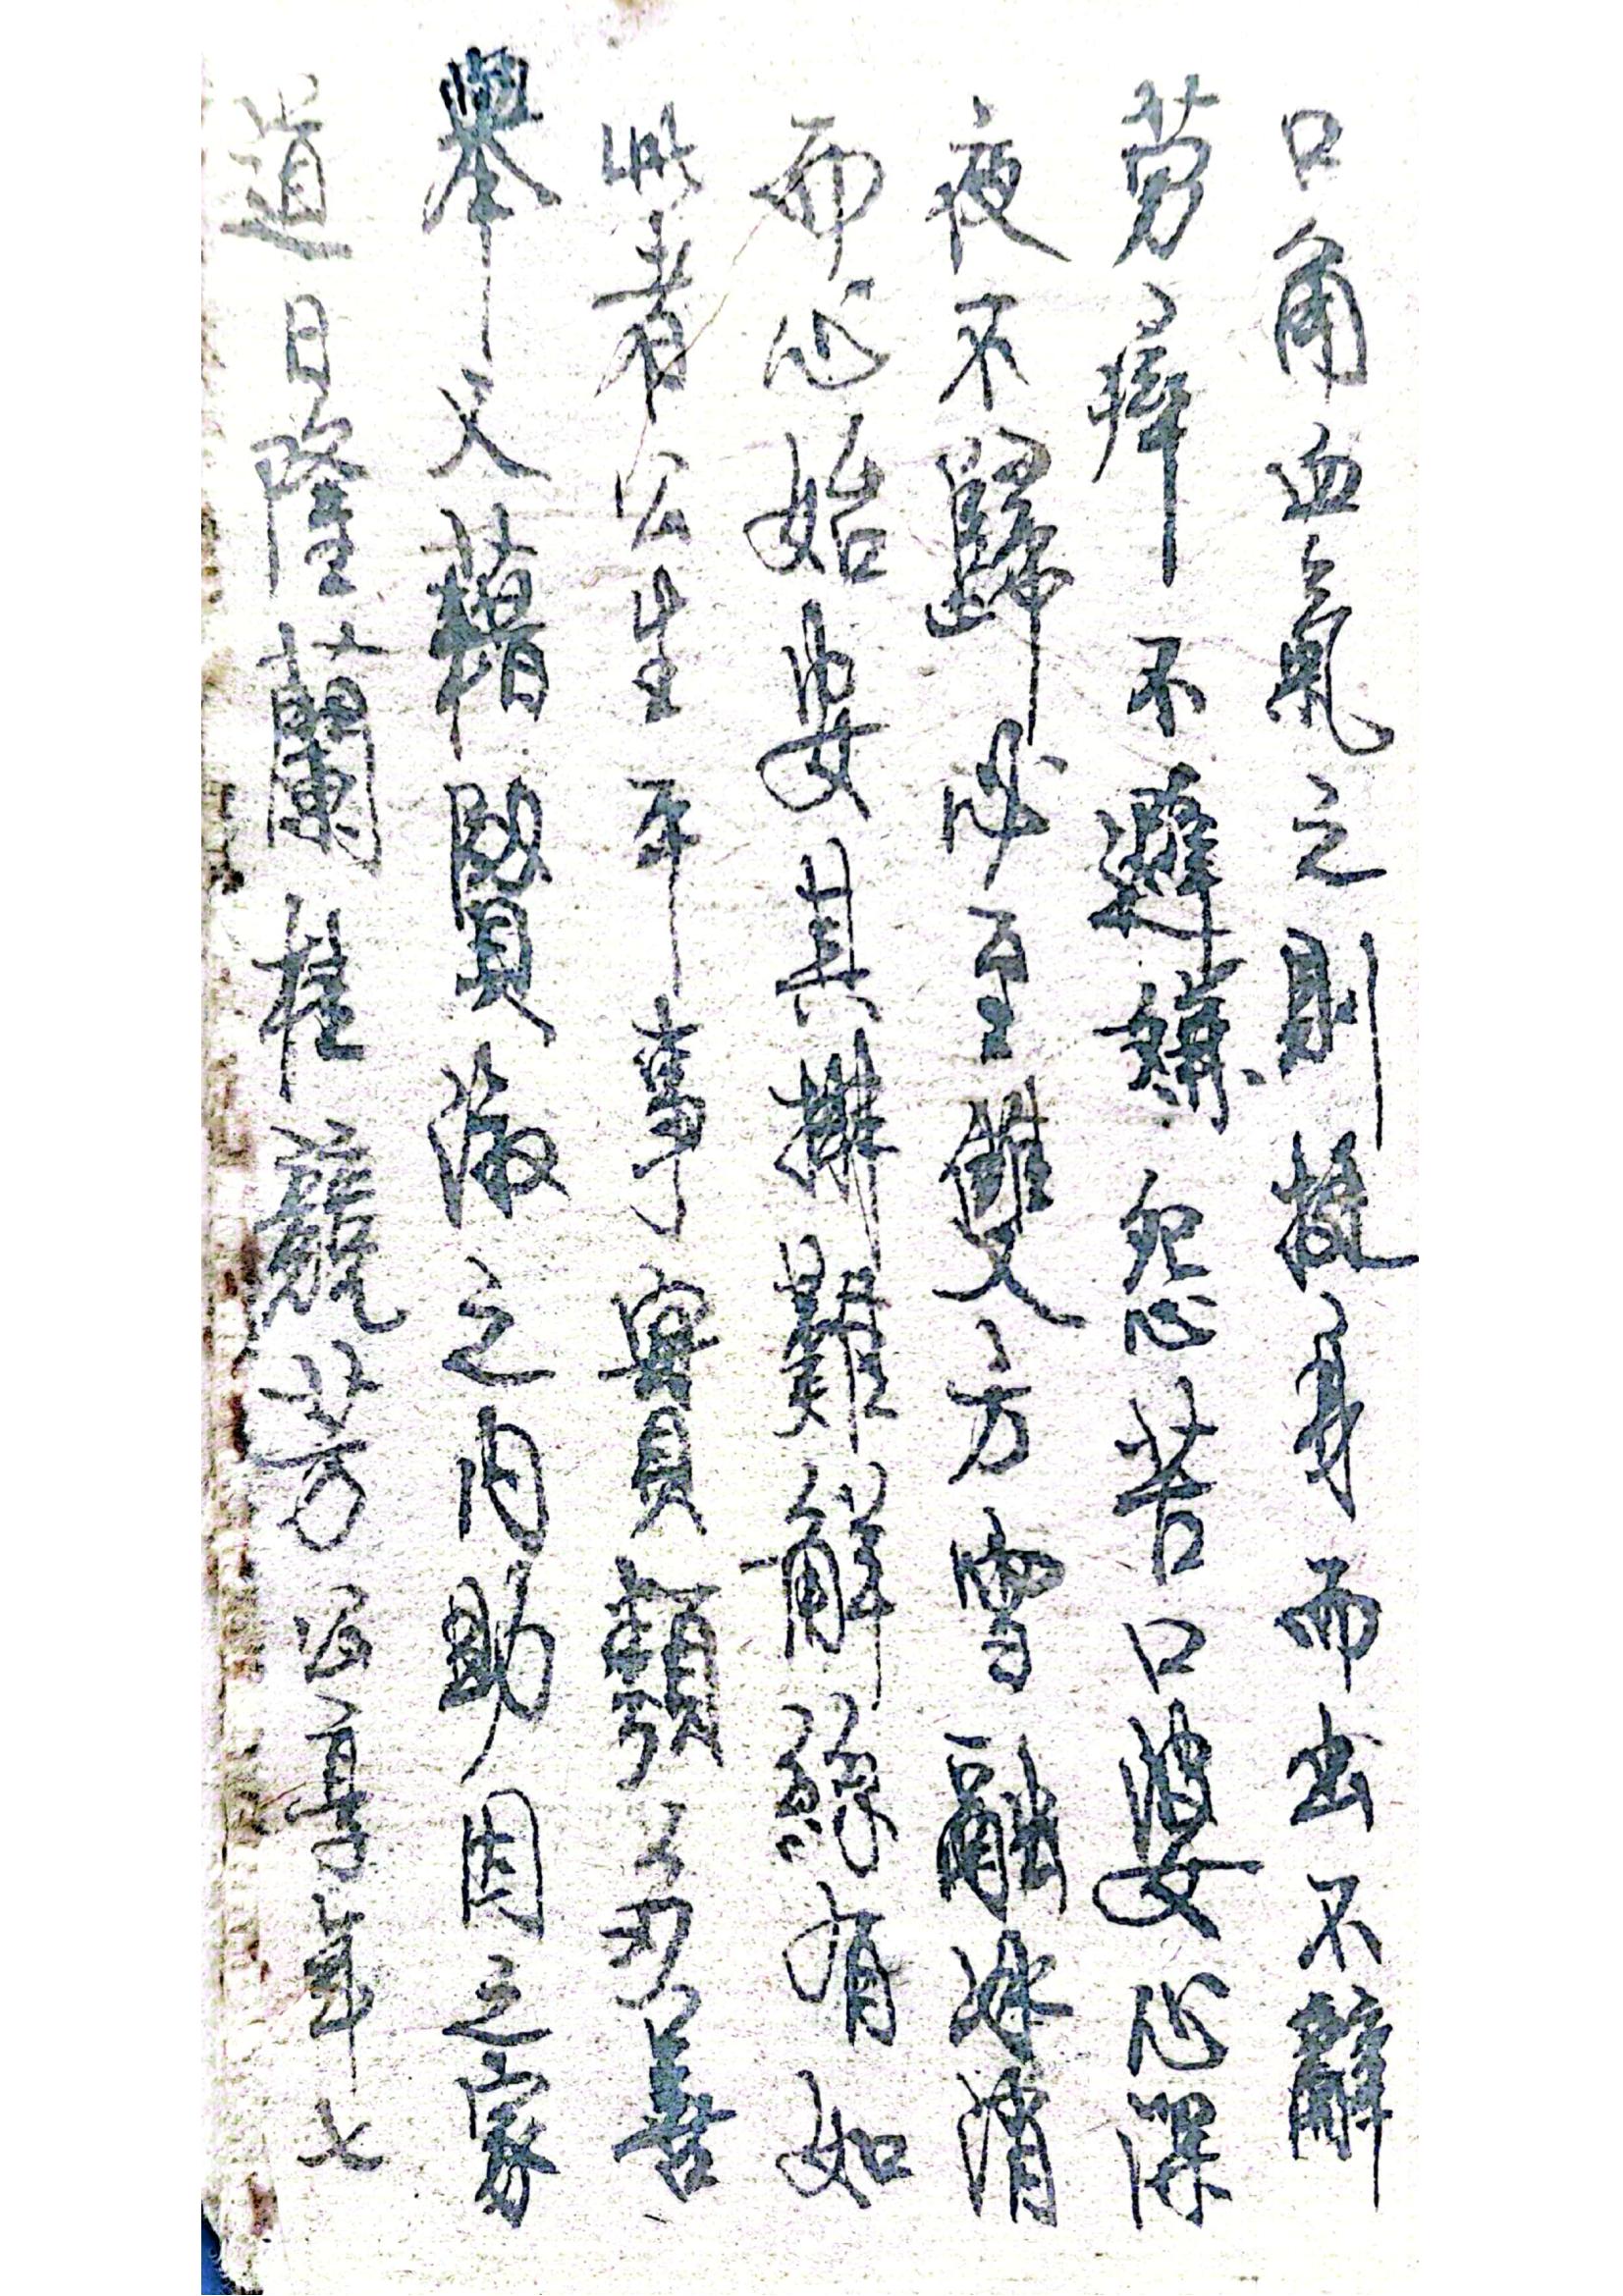 口角血氣之則挺身而出不辭
劳瘁不避嫌怨苦口婆心深
夜不歸必至雙方雪融冰消
而心始安其排難解紛有如
此者公生平事實類多義善
舉又藉賢淑之内助因之家
道日隆蘭桂競芳公享年七